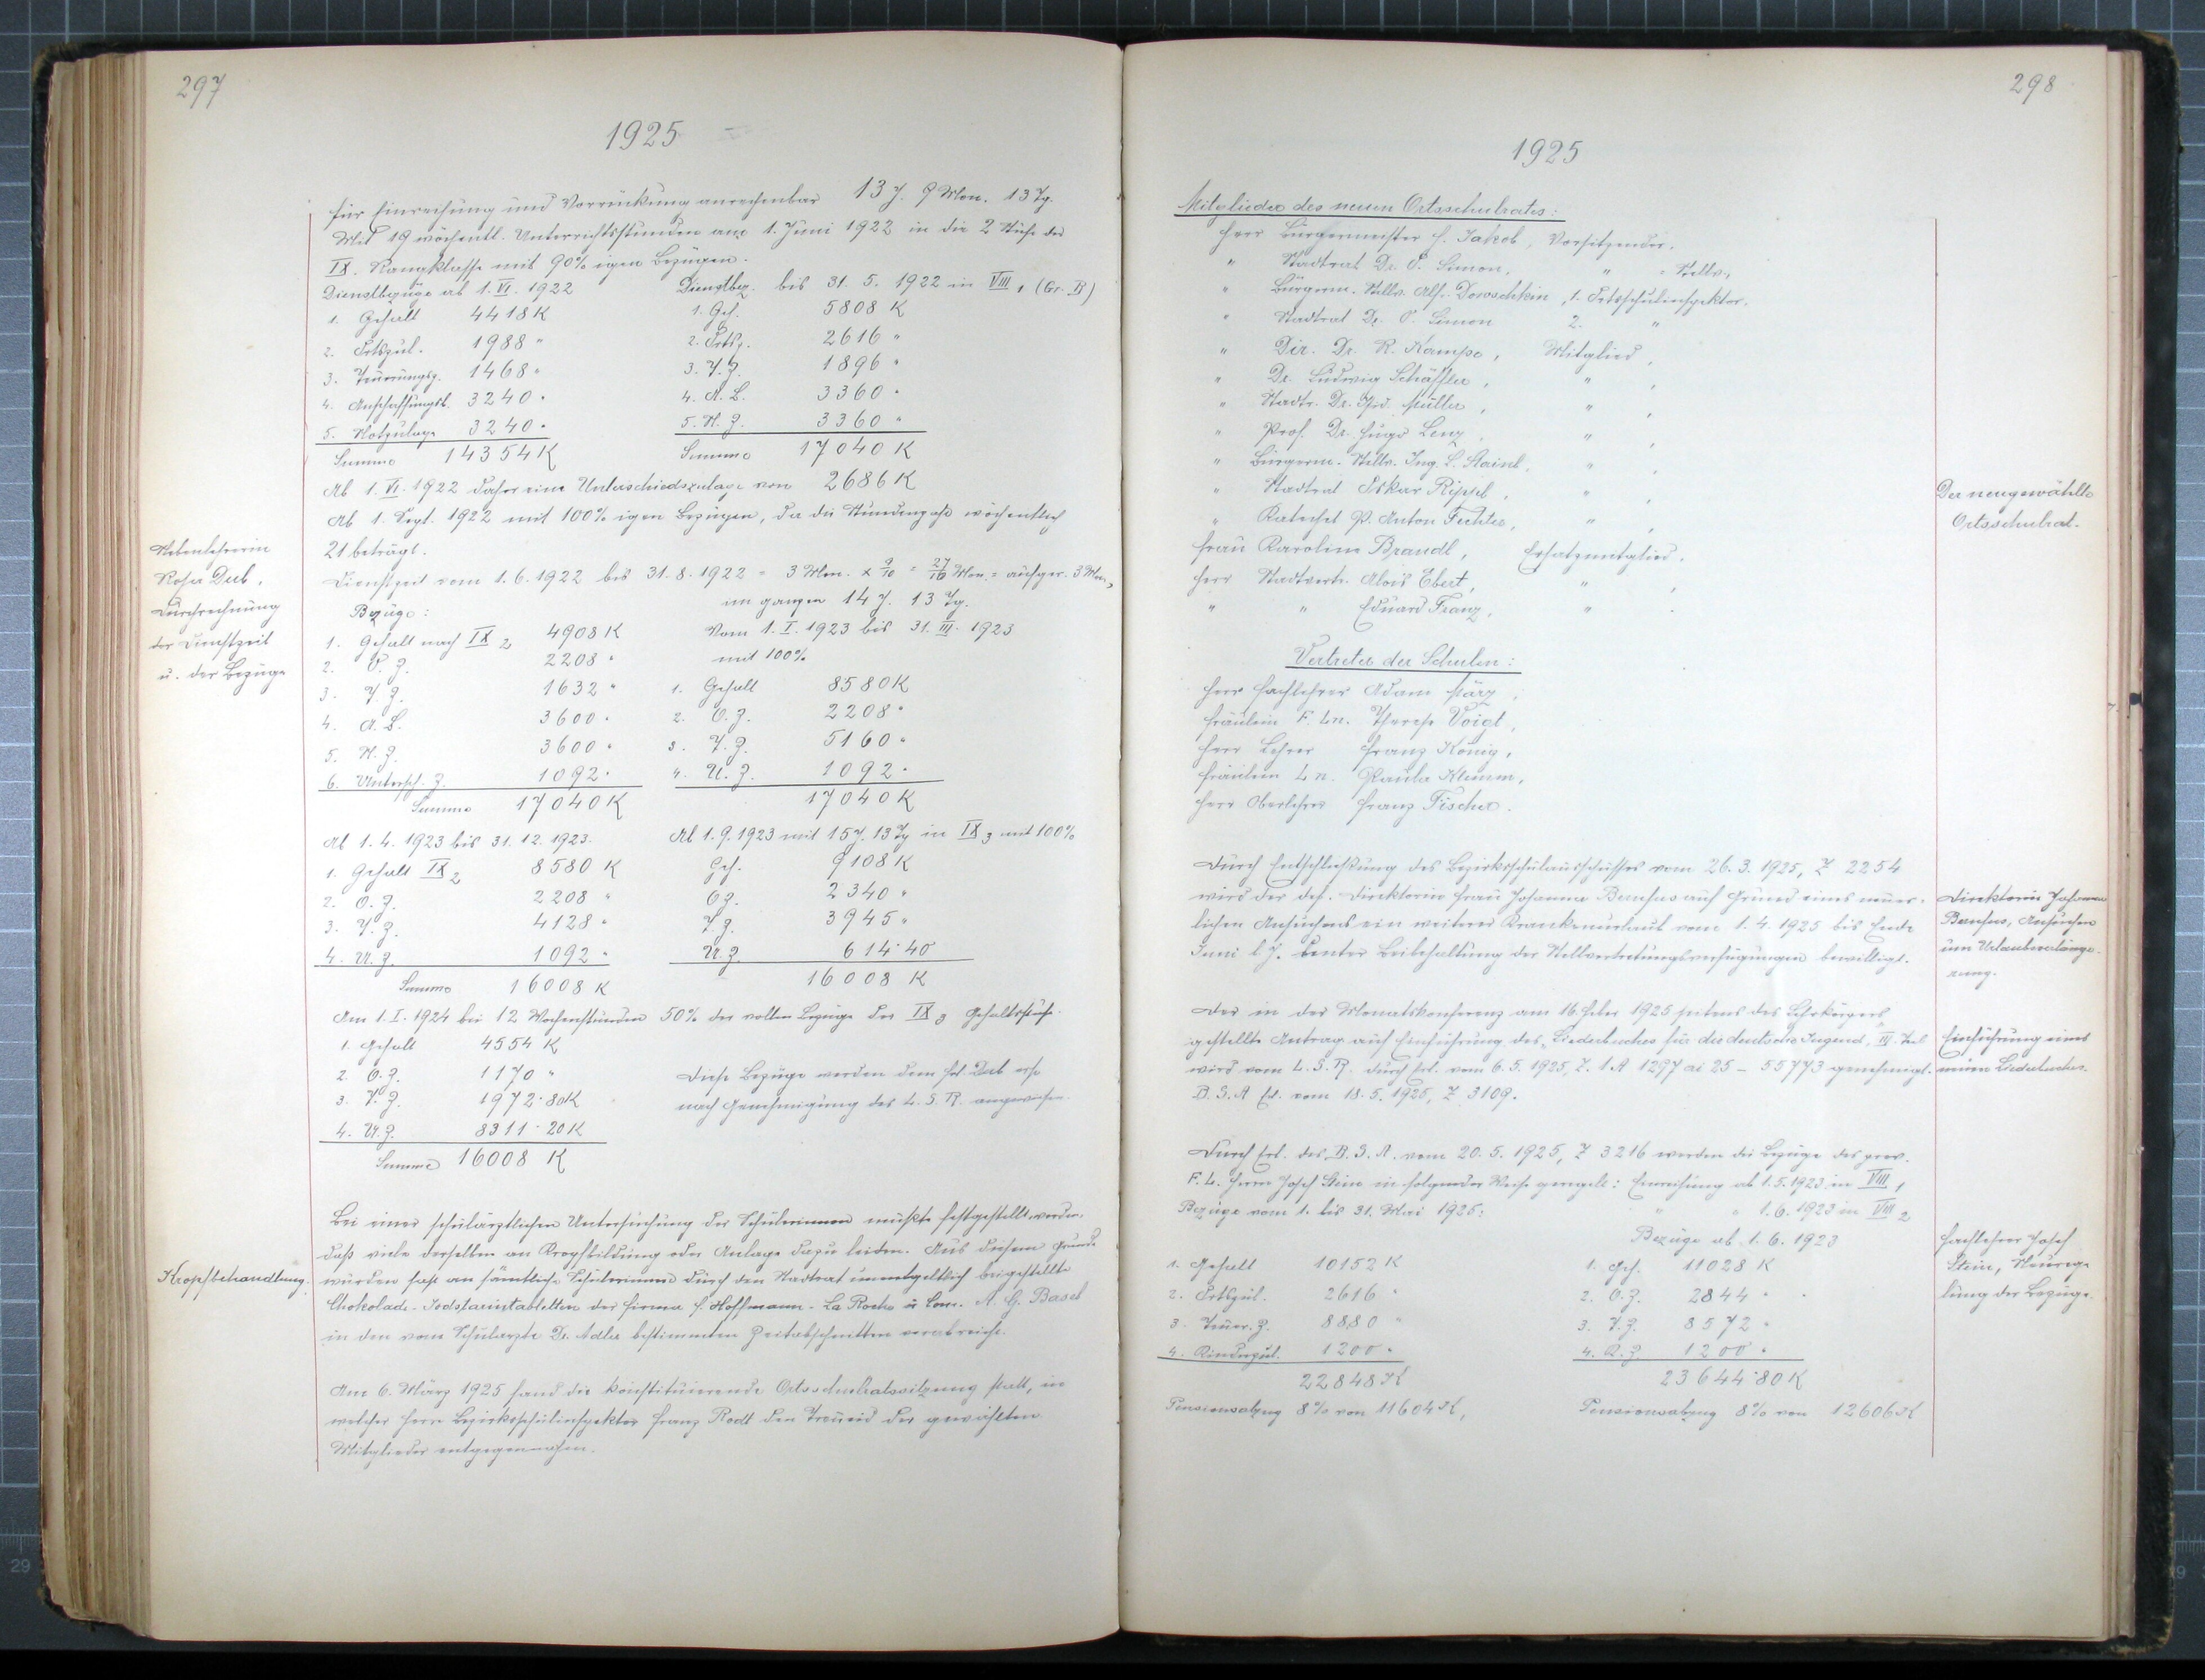 297
1925
für Einreihung und Vorrückung anrechenbar 13 J. 9 Mon. 13 Tg.
Mit 19 wöchentl. Unterrichtsstunden am 1. Juni 1922 in die 2 Stufe der
IX. Rangklasse mit 90% igen Bezügen.
Dienstbezüge ab 1. VI. 1922 Dienstbez. bis 31. 5. 1922 in VIII 1 (Gr. B)
1. Gehalt 4418 K 1. Geh. 5808 K
2. Ortszul. 1988 " 2. Ortsz. 2616 "
3. Teuerungsz. 1468 " 3. T. Z. 1896 "
4. Anschaffungsb. 3240 " 4. A. B. 3360 "
5. Notzulage 3240 " 5. N. Z. 3360 "
Summe 14354 K Summe 17040 K
Ab 1. VI. 1922 daher eine Unterschiedszulage von 2686 K
Ab 1. Sept. 1922 mit 100% igen Bezügen, da die Stundenzahl wöchentlich
21 beträgt.
Nebenlehrerin
Rosa Dub,
Durchrechnung
der Dienstzeit
u. der Bezüge
Dienstzeit vom 1. 6. 1922 bis 31. 8. 1922 = 3 Mon. x 9/10 = 27/10 Mon. = aufger. 3 Mon.,
im ganzen 14 J. 13 Tg.
Bezüge:
1. Gehalt nach IX 2 4908 K Vom 1. I. 1923 bis 31. III. 1923
2. O. Z. 2208 " mit 100%
3. T. Z. 1632 " 1. Gehalt 8580 K
4. A. B. 3600 " 2. O. Z. 2208 "
5. N. Z. 3600 " 3. T. Z. 5160 "
6. Untersch. Z. 1092 " 4. U. Z. 1092 "
Summe 17040 K 17040 K
Ab 1. 4. 1923 bis 31. 12. 1923. Ab 1. 9. 1923 mit 15 J. 13 Tg in IX 3 mit 100%
1. Gehalt IX 2 8580 K Geh. 9108 K
2. O. Z. 2208 " O Z. 2340 "
3. T. Z. 4128 " T. Z. 3945 "
4. U. Z. 1092 " U. Z. 614·40
Summe 16008 K 16008 K
Am 1. I. 1924 bei 12 Wochenstunden 50% der vollen Bezüge der IX 3 Gehaltsstufe.
1. Gehalt 4554 K
2. O. Z. 1170 " Diese Bezüge werden dem Frl. Dub erst
3. T. Z. 1972·80 K nach Genehmigung des L. S. R. angewiesen.
4. U. Z. 8311·20 K
Summe 16008 K
Kropfbehandlung.
Bei einer schulärztlichen Untersuchung der Schülerinnen mußte festgestellt werden,
daß viele derselben an Kropfbildung oder Anlage dazu leiden. Aus diesem Grunde
wurden fast an sämtliche Schülerinnen durch den Stadtrat unentgeltlich beigestellte
Chokolade-Jodstarintabletten der Firma F. Hoffmann-La Roche u. Com. A. G. Basel
in den vom Schularzte Dr. Adler bestimmten Zeitabschnitten verabreicht.
Am 6. März 1925 fand die konstituierende Ortsschulratssitzung statt, in
welcher Herr Bezirksschulinspektor Franz Redl den Treueid der gewählten
Mitglieder entgegennahm.
298
1925
Mitglieder des neuen Ortsschulrates:
Herr Bürgermeister H. Jakob, Vorsitzender.
" Stadtrat Dr. O. Simon, " - Stellv.,
" Bürgerm. Stellv. Alf. Dowschkin, 1. Ortsschulinspektor.
" Stadtrat Dr. O. Simon 2. "
" Dir. Dr. R. Kampe, Mitglied,
" Dr. Ludwig Schäffler, " ,
" Stadtr. Dr. Müller, " ,
" Prof. Dr. Hugo Lenz, " ,
" Bürgerm. Stellv. Ing. L. Stainl, " ,
" Stadtrat Oskar Rippl, " ,
" Katechet P. Anton Fechter, " ,
Frau Karoline Brandl, Ersatzmitglied.
Herr Stadtvertr. Alois Ebert, " ,
" " Eduard Franz, " .
Der neugewählte
Ortsschulrat.
Vertreter der Schulen:
Herr Fachlehrer Adam März,
Fräulein F. Ln. Therese Voigt,
Herr Lehrer Franz König,
Fräulein Ln. Paula Klemm,
Herr Oberlehrer Franz Fischer.
Durch Entschließung des Bezirksschulausschusses vom 26. 3. 1925, Z 2254
wird der def. Direktorin Frau Johanna Benesus auf Grund eines neuer-
lichen Ansuchens ein weiterer Krankenurlaub vom 1. 4. 1925 bis Ende
Juni l. J. unter Beibehaltung der Stellvertretungsverfügungen bewilligt.
Direktorin Johanna
Benesus, Ansuchen
um Urlaubsverlänge-
rung.
Der in der Monatskonferenz am 16. Feber 1925 seitens des Lehrkörpers
gestellte Antrag auf Einführung des „Liederbuches für die deutsche Jugend, III. Teil
wird vom L. S. R. durch Erl. vom 6. 5. 1925, Z. I A 1297 ai 25 - 55773 genehmigt.
B. S. A Erl. vom 18. 5. 1925, Z 3109.
Einführung eines
neuen Liederbuches.
Durch Erl. des B. S. A. vom 20. 5. 1925, Z 3216 werden die Bezüge des prov.
F. L. Herrn Josef Stein in folgender Weise geregelt: Einreihung ab 1. 5. 1923 in VIII 1
Bezüge vom 1. bis 31. Mai 1925: " " 1. 6. 1923 in VIII 2
Bezüge ab 1. 6. 1923
1. Gehalt 10152 K 1. Geh. 11028 K
2. Ortszul. 2616 " 2. O. Z. 2844 "
3. Teuer. Z. 8880 " 3. T. Z. 8572 "
4. Kinderzul. 1200 " 4. K. Z. 1200 "
22848 K 23644·80 K
Pensionsabzug 8% von 11604 K, Pensionsabzug 8% von 12606 K
Fachlehrer Josef
Stein, Neurege-
lung der Bezüge.
29